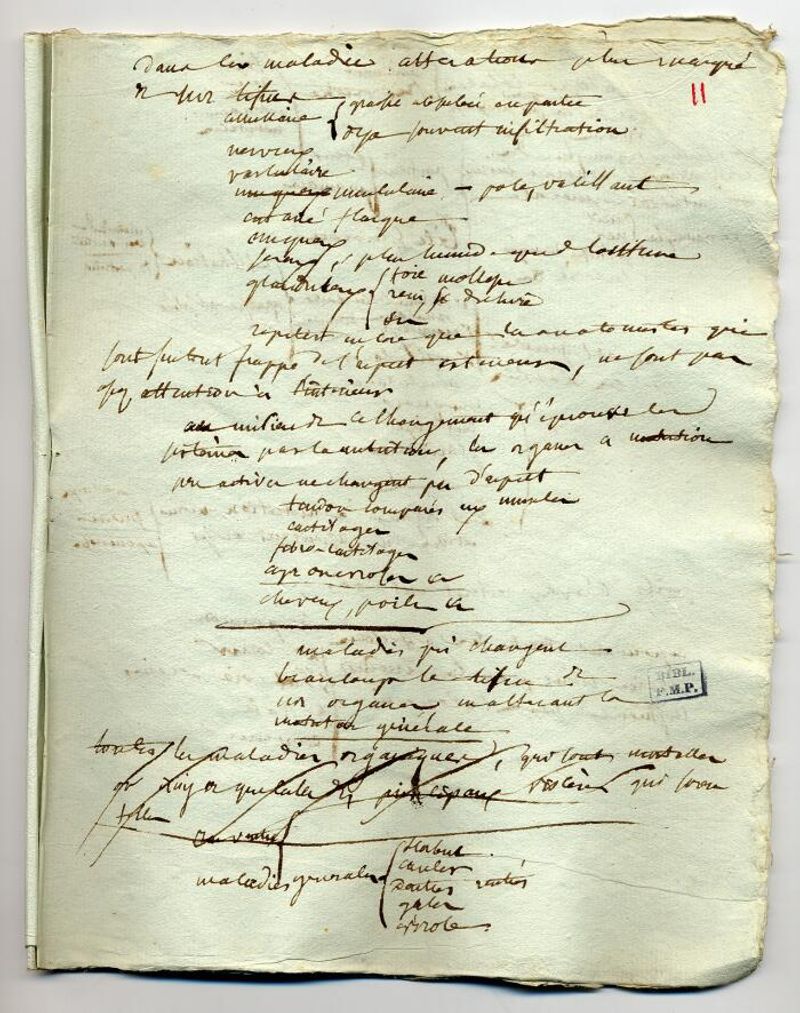 Dans les maladies alterations plus marqué
11
de nos tissus
cellulaire
graisse absorbée en partie
souvent infiltration
nerveux
vasculaire
musculaire — pale, vacillant
cutané flasque
muqueux
sereux, plus humide que de coutume
glanduleux
foie mollasse
rein
repeter encore que les anatomistes qui
sont surtout frappé de l'aspect exterieur, ne font pas
attention à l'interieur
au milieu de ce changement qu'éprouve les
systèmes par la nutrition, les organes a nutrition
peu active ne changent pas d'aspect
tendons comparés aux muscles
cartilages
fibro-cartilages
aponevroses &
cheveux, poils &
maladies qui changent
beaucoup le tissu de
nos organes en alterant la
nutrition générale
BIBL.
F.M.P.
toutes les maladies organiques, qui sont
que celle des principaux viscères qui
maladies generales
scorbut
cancer
dartres
gales